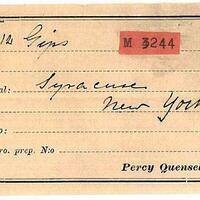 14 Gips M 3244
al: Syracuse
New York
o:
ro. prep. N:o
Percy Quense